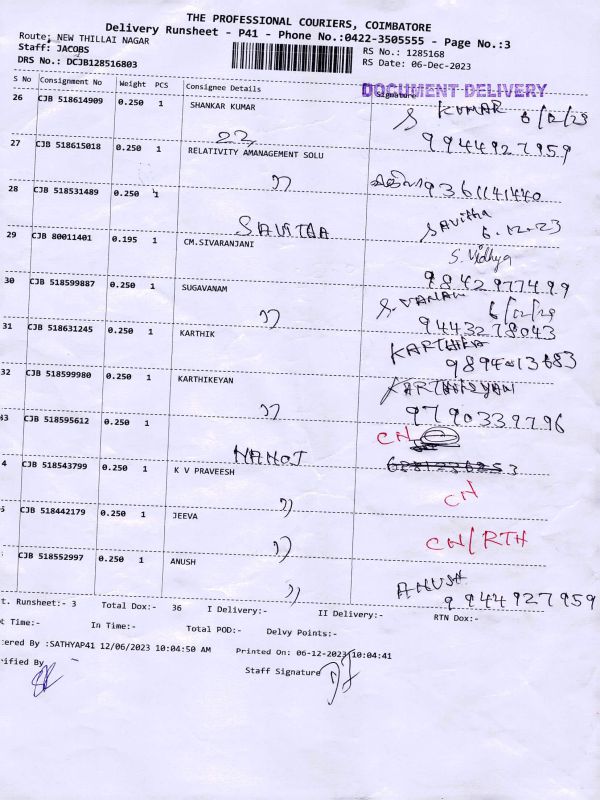 THE PROFESSIONAL COURIERS, COIMBATORE
Delivery Runsheet - P41 - Phone No.:0422-3505555 - Page No.:3
Route: NEW THILLAI NAGAR
Staff: JACOBS
DRS No.: DCJB128516803
RS No.: 1285168
RS Date: 06-Dec-2023
DOCUMENT DELIVERY
S No Consignment No Weight PCS Consignee Details Signature
26 CJB 518614909 0.250 1 SHANKAR KUMAR S KUMAR 6/12/23
9944927959
27 CJB 518615018 0.250 1 RELATIVITY AMANAGEMENT SOLU
9361141440
28 CJB 518531489 0.250 1 SAVITHA Savitha
6.12.23
29 CJB 80011401 0.195 1 CM.SIVARANJANI S. Vidhya
9842977499
30 CJB 518599887 0.250 1 SUGAVANAM S.VANAM 6/12/23
9443278043
31 CJB 518631245 0.250 1 KARTHIK KARTHIKA
32 CJB 518599980 0.250 1 KARTHIKEYAN KARTHIKEYAN
9790339796
33 CJB 518595612 0.250 1 CN
4 CJB 518543799 0.250 1 K V PRAVEESH CN
CJB 518442179 0.250 1 JEEVA CN/RTH
CJB 518552997 0.250 1 ANUSH ANUSH
9944927959
t. Runsheet:- 3 Total Dox:- 36 I Delivery:- II Delivery:- RTN Dox:-
t Time:- In Time:- Total POD:- Delvy Points:-
tered By :SATHYAP41 12/06/2023 10:04:50 AM Printed On: 06-12-2023 10:04:41
rified By Staff Signature